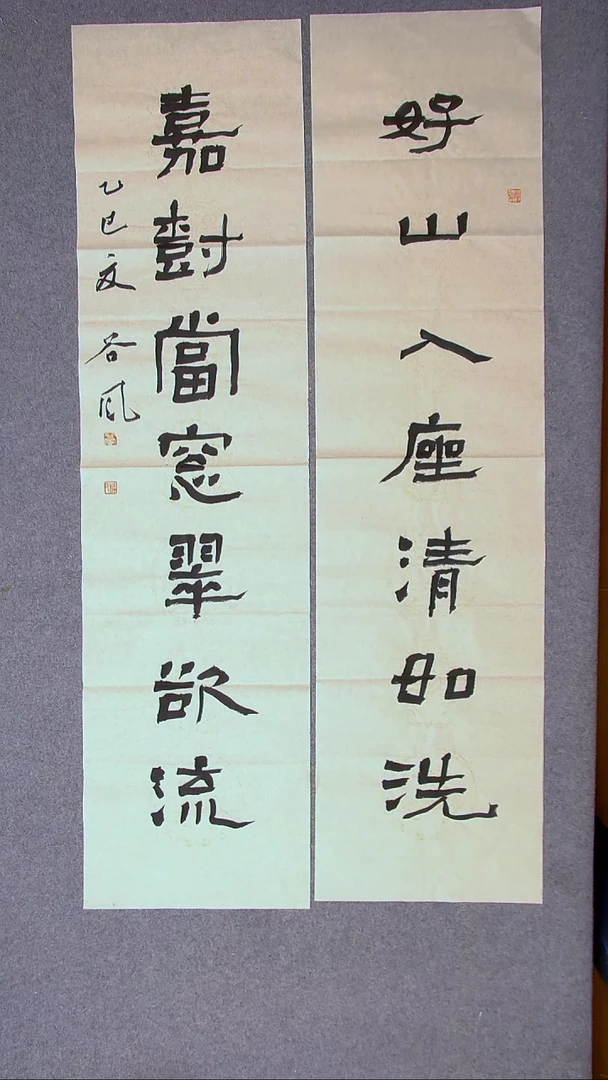 好山入座清如洗
嘉樹當窓翠欲流
乙巳夏 谷風